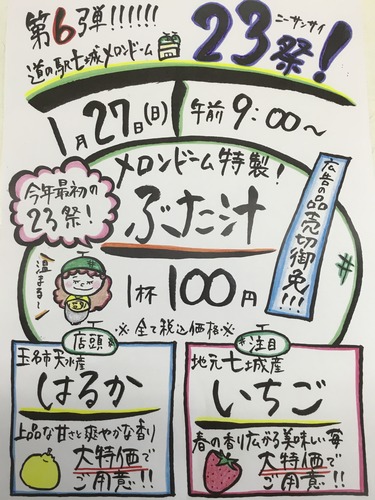 第6弾!!!!!!
道の駅七城メロンドーム
ニーサンサイ
23祭!
1月27日(日)
午前9:00～
メロンドーム特製!
ぶた汁
1杯100円
※全て税込価格※
広告の品売切御免!!!
今年最初の
23祭!
温まる～
店頭
玉名市天水産
はるか
上品な甘さと爽やかな香り
大特価で
ご用意!!
注目
地元七城産
いちご
春の香り広がる美味しい苺
大特価で
ご用意!!